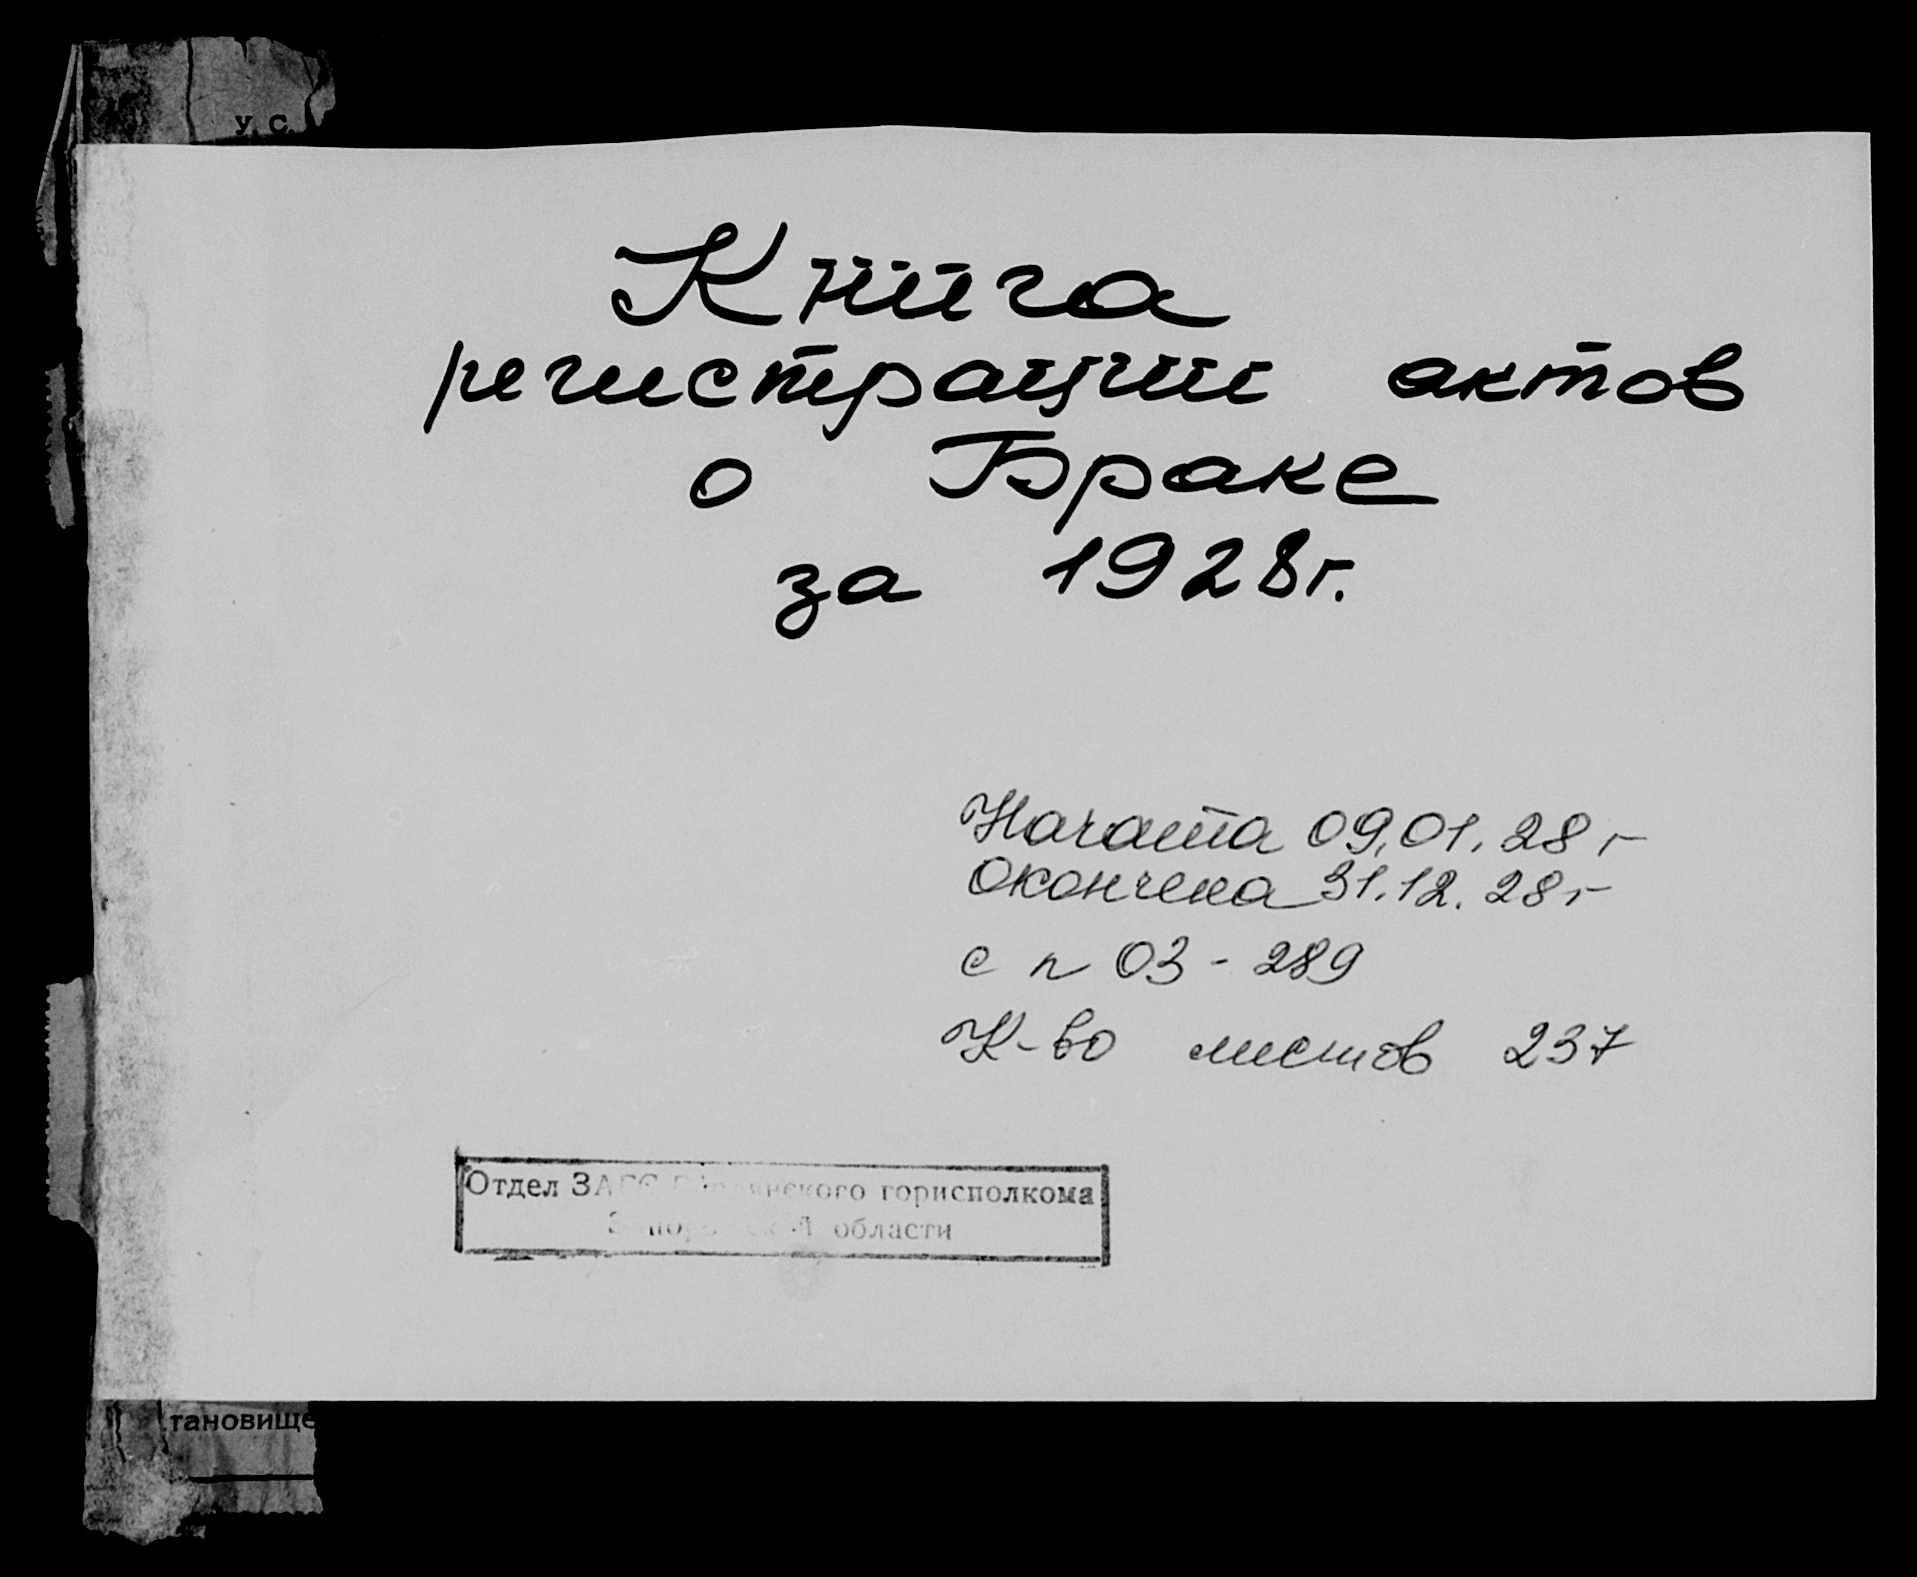 У. С.
Книга
регистрации актов
о Браке
за 1928г.
Начата 09.01.28 г
Окончена 31.12.28 г
с п 03 - 289
К-во листов 237
Отдел горисполкома
области
тановище